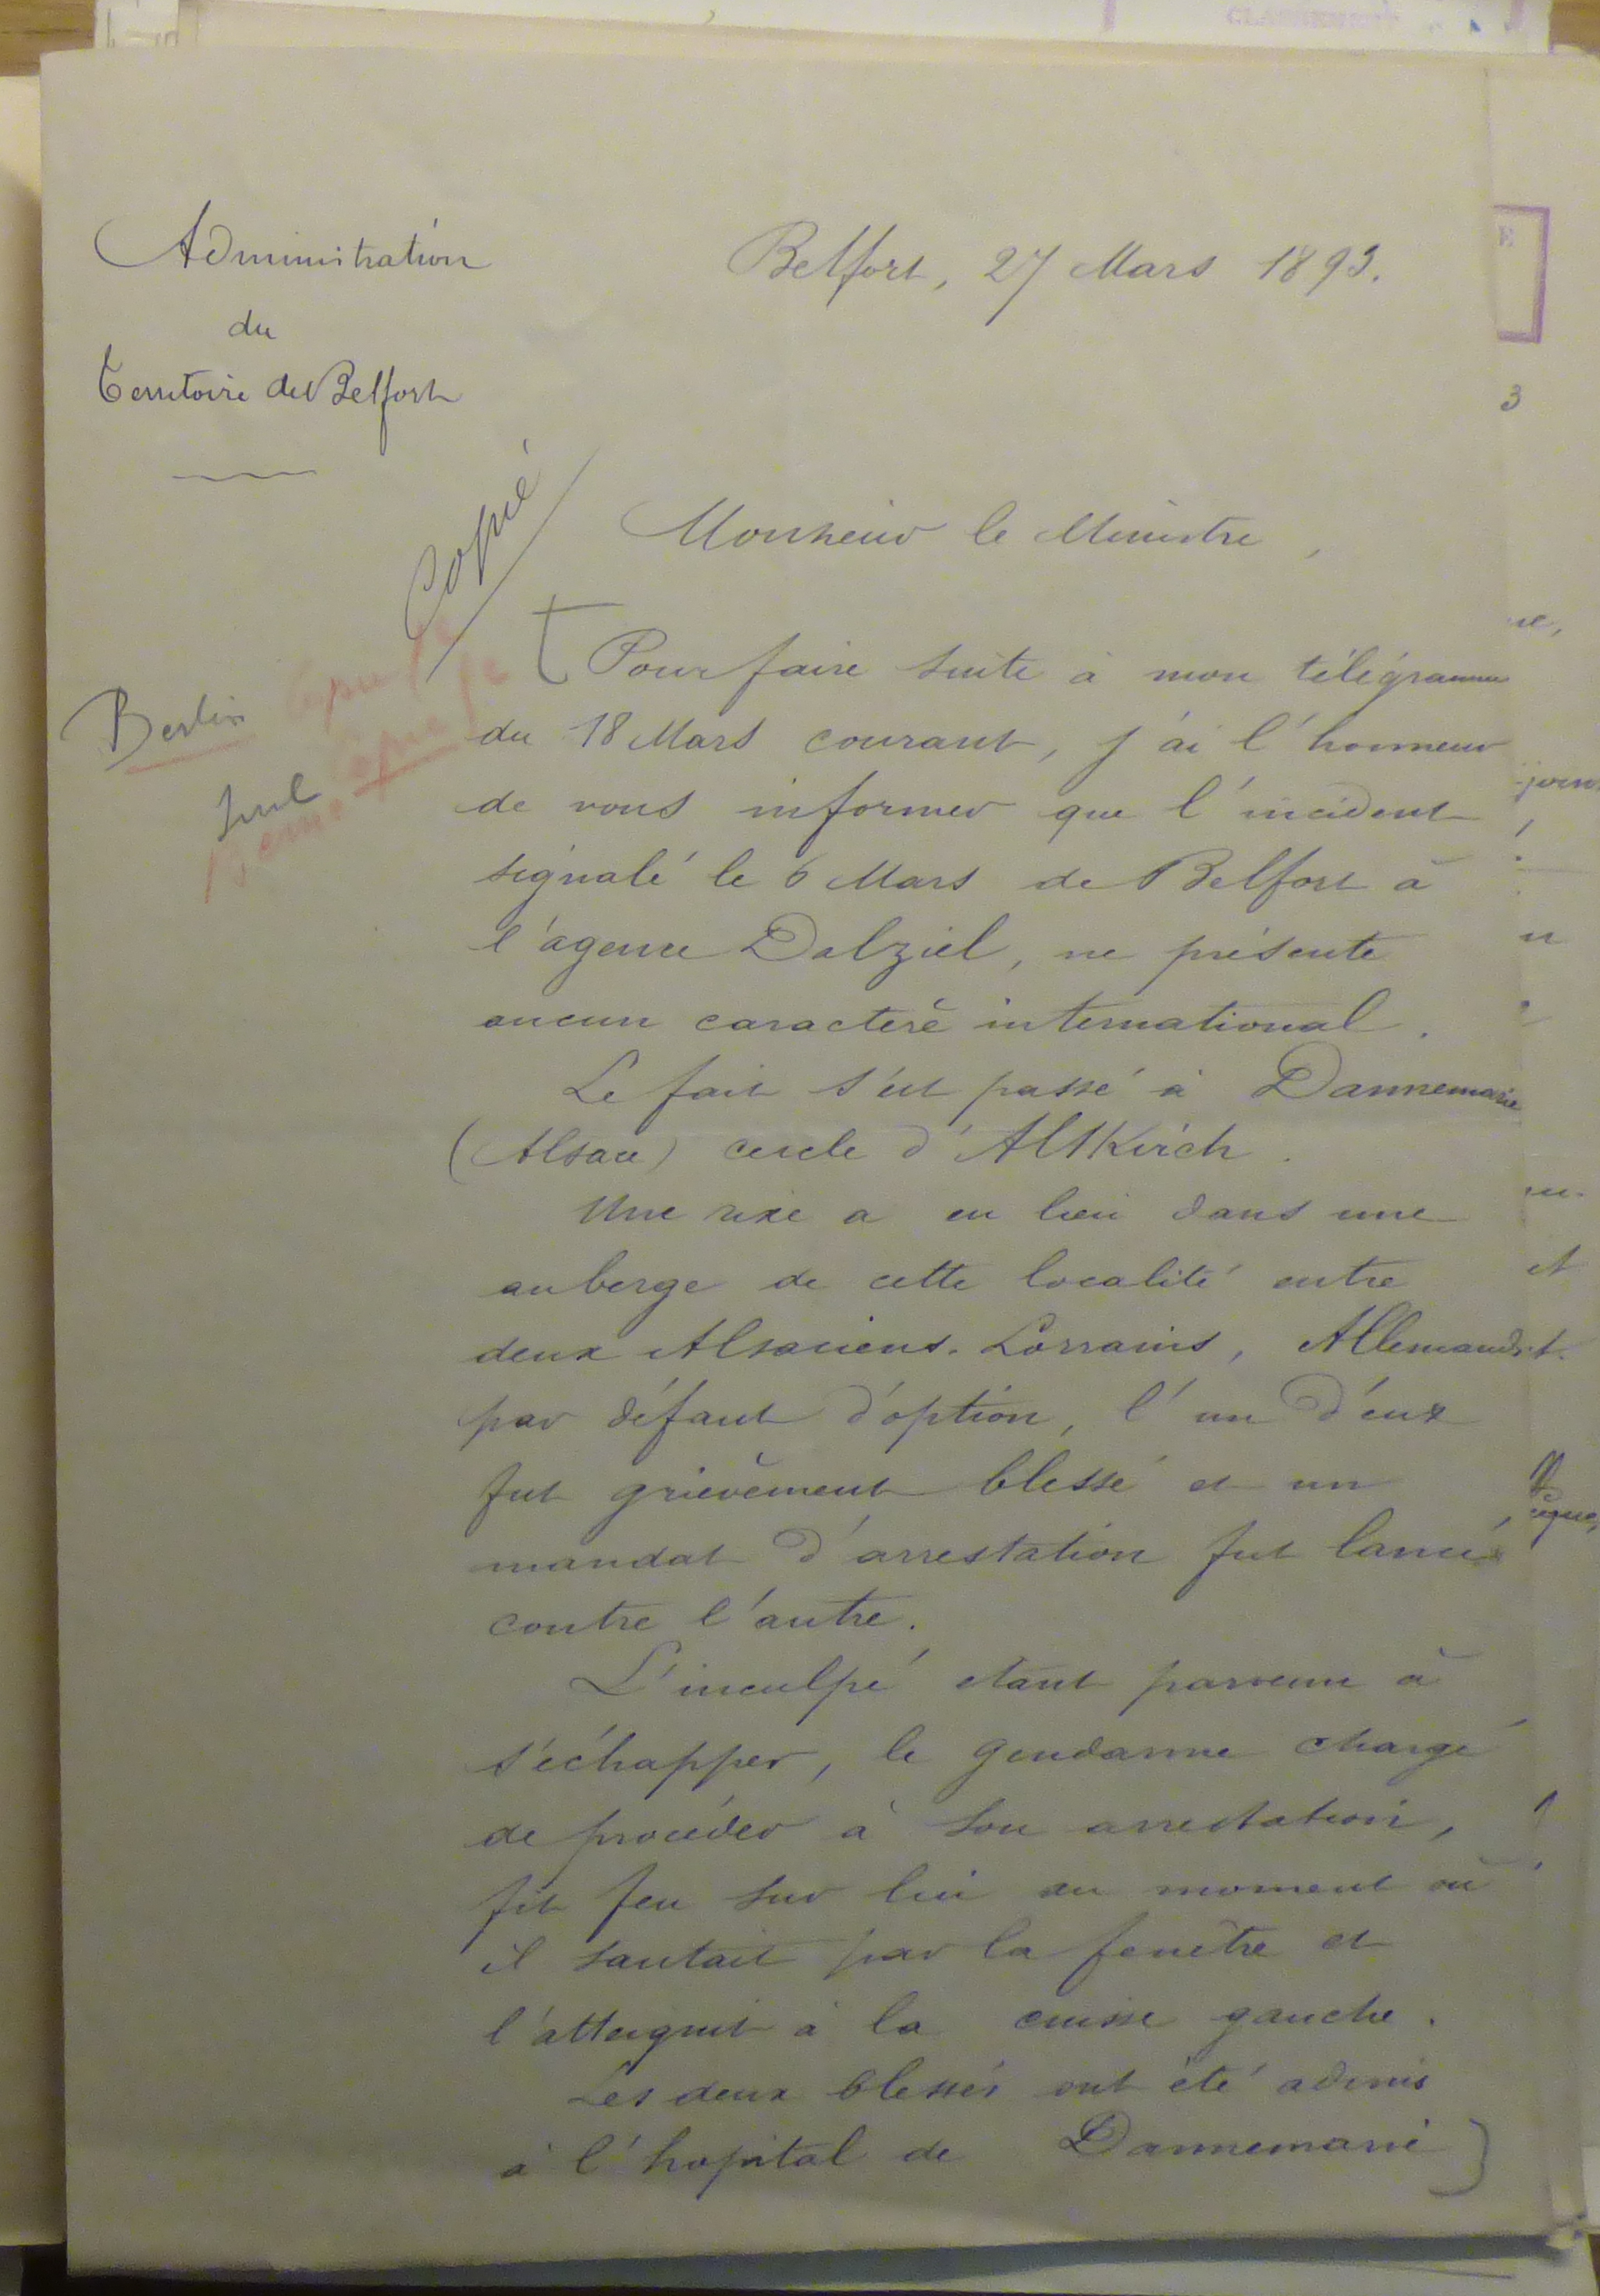 Administration
du
Territoire de Belfort
Belfort, 27 Mars 1893.
Copié
Monsieur le Ministre,
Berlin
Pour faire suite à mon télégramme
du 18 Mars courant, j'ai l'honneur
de vous informer que l'incident
signalé le 6 Mars de Belfort à
l'agence Dalziel, ne présente
aucun caractère international.
Le fait s'est passé à Dannemarie
(Alsace) cercle d'Altkirch.
Une rixe a eu lieu dans une
auberge de cette localité entre
deux Alsaciens-Lorrains, Allemands
par défaut d'option, l'un d'eux
fut grièvement blessé et un
mandat d'arrestation fut lancé
contre l'autre.
L'inculpé étant parvenu à
s'échapper, le gendarme chargé
de procéder à son arrestation,
fit feu sur lui au moment où
il sautait par la fenêtre et
l'atteignit à la cuisse gauche.
Les deux blessés ont été admis
à l'hopital de Dannemarie